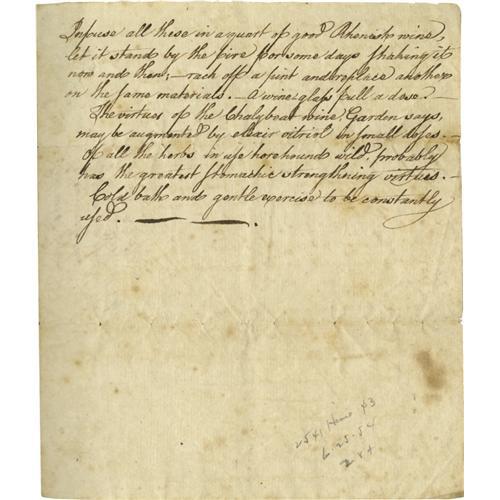 Infuse all these in a quart of good Rhenish wine,
let it stand by the fire for some days shaking it
now and then, – rack off a pint and replace another
on the same materials. – A wine glass full a dose. –
The virtues of the Chalybeat wine, Garden says,
may be augmented by elixir vitriol in small doses. –
Of all the herbs in use horehound wild, probably
has the greatest stomachic strengthning virtues. –
Cold bath and gentle exercise to be constantly
used.
2541 #3
6-25-54